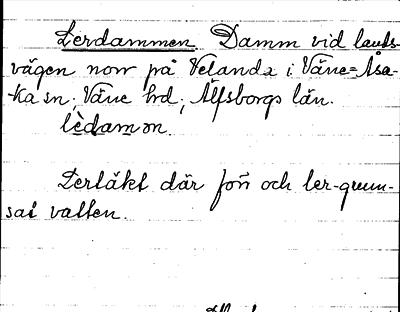 Lerdammen Damm vid lands-
vägen norr på Velanda i Väne-Åsa-
ka sn, Väne hd, Älfsborgs län.
lèdamən.
Lertäkt där förr och ler-grum-
sat vatten.